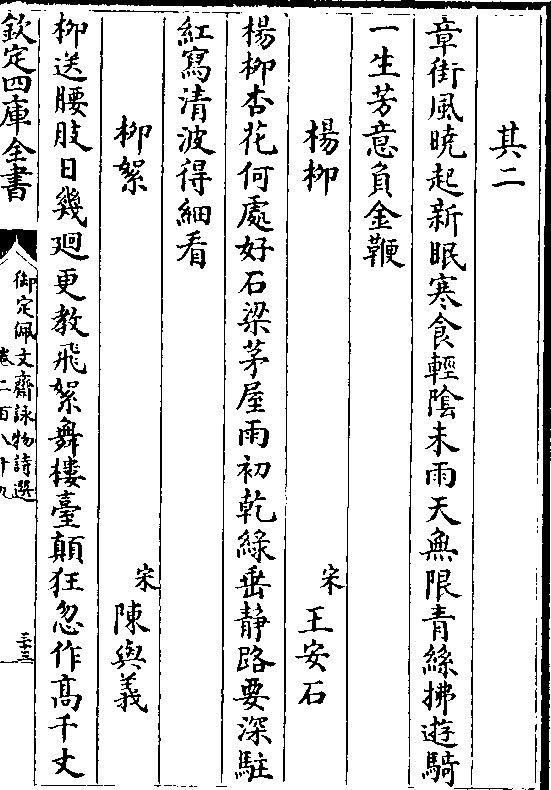 其二
章街風曉起新眠寒食輕隂未雨天無限青絲拂遊騎
一生芳意負金鞭
楊柳
宋 王安石
楊柳杏花何處好石梁茅屋雨初乾綠垂静路要深駐
紅寫清波得細看
柳絮
宋 陳與義
柳送腰肢日幾廻更教飛絮舞樓臺顛狂忽作髙千丈
欽定四庫全書
御定佩文齋詠物詩選
卷二百八十九
三十三